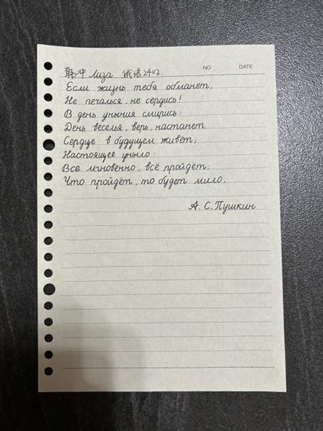 NO DATE
Лиза 俄语2402
Если жизнь тебя обманет,
Не печалься, не сердись!
В день уныния смирись:
День веселья, верь, настанет.
Сердце в будущем живёт;
Настоящее уныло:
Всё мгновенно, всё пройдёт;
Что пройдёт, то будет мило.
А. С. Пушкин